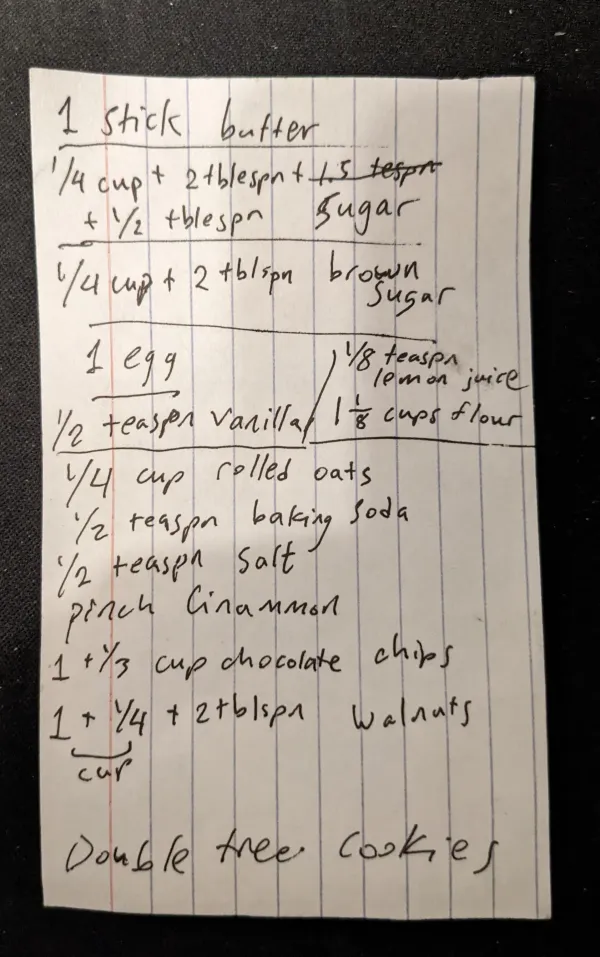 1 stick butter
1/4 cup + 2 tblespn + 1.5 tespn
+ 1/2 tblespn sugar
1/4 cup + 2 tblspn brown
sugar
1 egg
1/8 teaspn
lemon juice
1/2 teaspn vanilla
1 1/8 cups flour
1/4 cup rolled oats
1/2 teaspn baking soda
1/2 teaspn salt
pinch Cinammon
1 + 1/3 cup chocolate chips
1 + 1/4 + 2 tblspn walnuts
cup
Double tree cookies